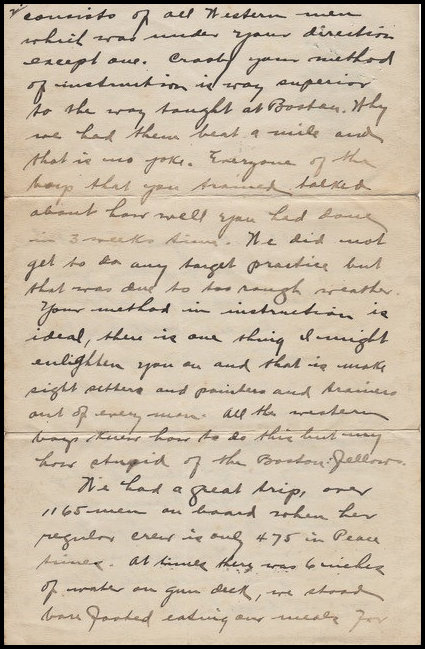 consists of all Western men
which was under your direction
except one. Crosby your method
of instruction is way superior
to the way taught at Boston. Why
we had them beat a mile and
that is no joke. Everyone of the
boys that you trained talked
about how well you had done
in 3 weeks time. We did not
get to do any target practice but
that was due to too rough weather
Your method in instruction is
ideal, there is one thing I might
enlighten you on and that is make
sight setters and pointers and trainers
out of every man. All the western
boys knew how to do this but my
how stupid of the Boston fellows.
We had a great trip, over
1165 men on board when her
regular crew is only 475 in Peace
times. At times there was 6 inches
of water on gun deck, we stood
bare footed eating our meals for